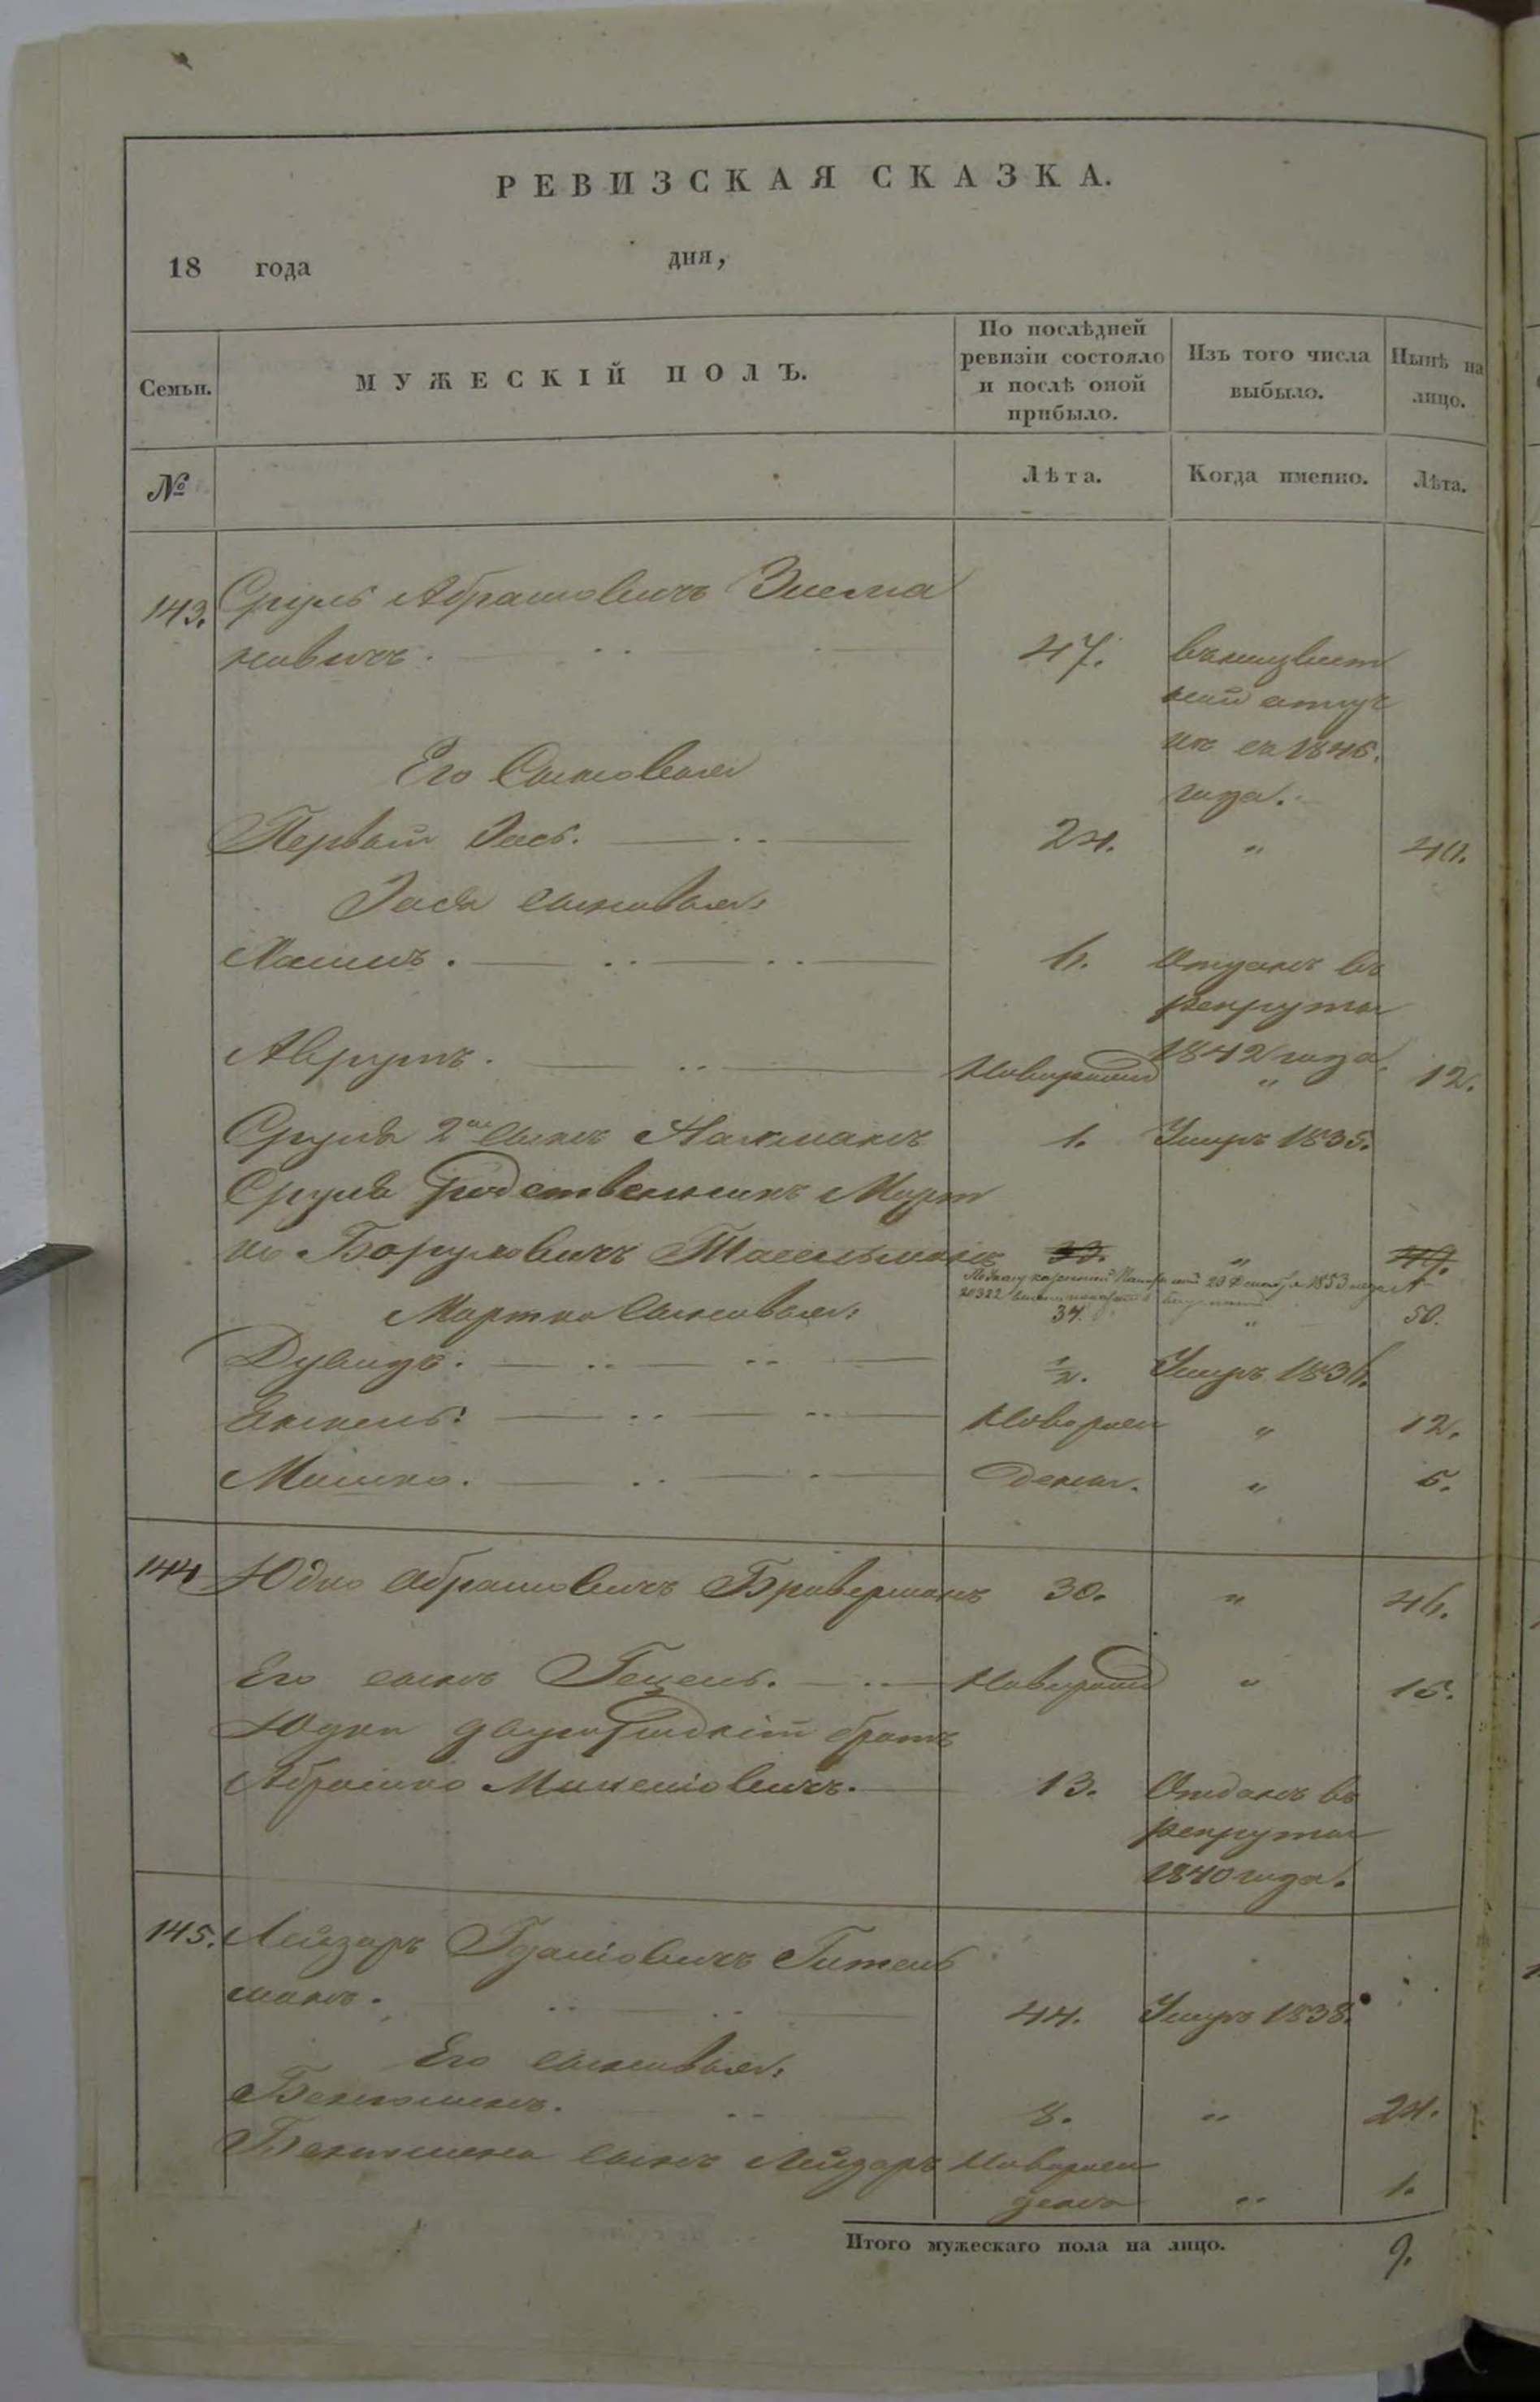 РЕВИЗСКАЯ СКАЗКА.
18 года дня,
Семьи. МУЖЕСКІЙ ПОЛЪ. По послѣдней ревизіи состояло и послѣ оной прибыло. Изъ того числа выбыло. Нынѣ на лицо.
№ Лѣта. Когда именно. Лѣта.
143. Сруль Абрамовичъ Зисма
новичъ. 47. въ неизвест
ной отлуч
ке съ 1846.
года.
Его Сыновья
Первый Іось. 24. " 40.
Іося сыновья:
6. Отданъ въ
рекруты
1842 года.
Аврумъ. Новорожд " 12.
Сруля 2й сынъ Нахманъ 1. Умеръ 1835.
Сруля родственникъ Март
ко Боруховичъ 33. " 49.
23 1853 года
20322
Мартка сыновья: 34. " 50.
Дувидъ. ½. Умеръ 1836.
Янкель: Новорож " 12.
Мошко. денн. " 5.
144 Юдко Абрамовичъ Браверманъ 30. " 46.
Его сынъ Гецель. Новорожд " 15.
Юдки двоюродній братъ
Абрамко 13. Отданъ въ
рекруты
1840 года.
145. Лейзоръ Гитель
манъ. 44. Умеръ 1838.
Его сыновья:
Беньоминъ. 8. " 24.
Беньомина сынъ Лейзоръ Новорож
денъ " 1.
Итого мужескаго пола на лицо. 9.